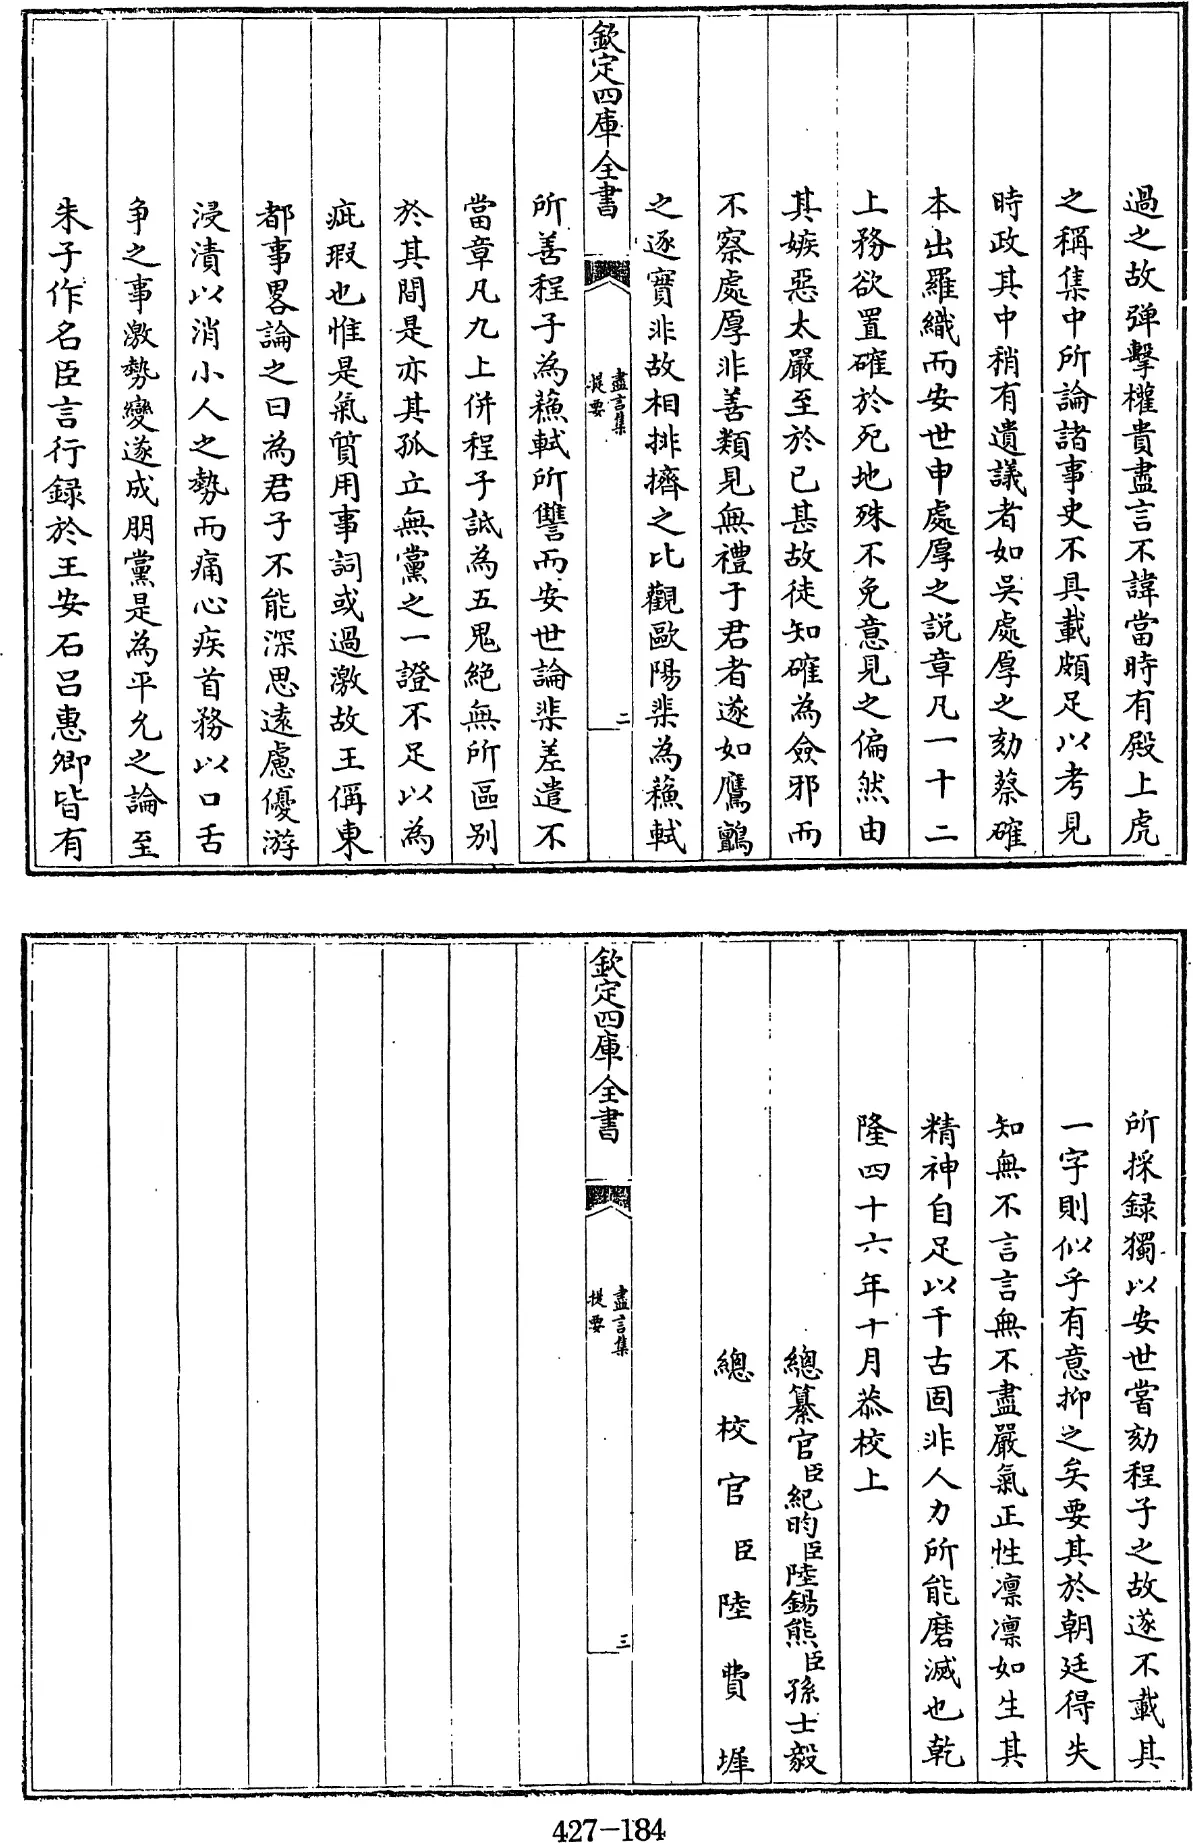 過之故弹擊權貴盡言不諱當時有殿上虎
之稱集中所論諸事史不具載頗足以考見
時政其中稍有遺議者如吳處厚之劾蔡確
本出羅織而安世申處厚之説章凡一十二
上務欲置確於死地殊不免意見之偏然由
其嫉惡太嚴至於已甚故徒知確為僉邪而
不察處厚非善類見無禮于君者遂如鷹鸇
之逐實非故相排擠之比觀歐陽棐為蘓軾
欽定四庫全書
盡言集
提要
二
所善程子為蘓軾所讐而安世論棐差遣不
當章凡九上併程子詆為五鬼絶無所區别
於其間是亦其孤立無黨之一證不足以為
疵瑕也惟是氣質用事詞或過激故王偁東
都事畧論之曰為君子不能深思遠慮優游
浸漬以消小人之勢而痛心疾首務以口舌
争之事激勢變遂成朋黨是為平允之論至
朱子作名臣言行録於王安石吕惠卿皆有
所採録獨以安世嘗劾程子之故遂不載其
一字則似乎有意抑之矣要其於朝廷得失
知無不言言無不盡嚴氣正性凛凛如生其
精神自足以千古固非人力所能磨滅也乾
隆四十六年十月恭校上
總纂官臣紀昀臣陸錫熊臣孫士毅
總校官臣陸費墀
欽定四庫全書
盡言集
提要
三
427-184